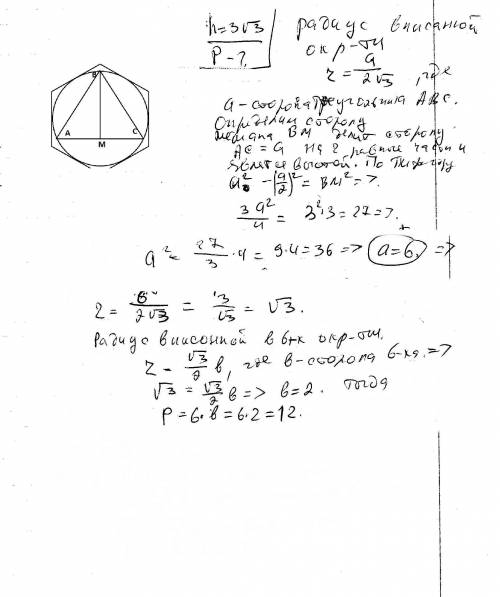 h=3√3
P-?
радиус вписанной
окр-ти
r = a / 2√3, где
a-сторона треугольника ABC.
Определим сторону
медиана BM делит сторону
AC = a на 2 равные части и
является высотой. По Пифагору
a² - (a/2)² = BM² =>
3a²/4 = 3²·3 = 27 =>
a² = 27/3 · 4 = 9·4 = 36 => a = 6 =>
r = 6 / 2√3 = 3/√3 = √3.
Радиус вписонной в 6-к окр-ти
r - √3/2 b, где b-сторона 6-ка =>
√3 = √3/2 b => b = 2. тогда
P = 6·b = 6·2 = 12.
B
A
C
M